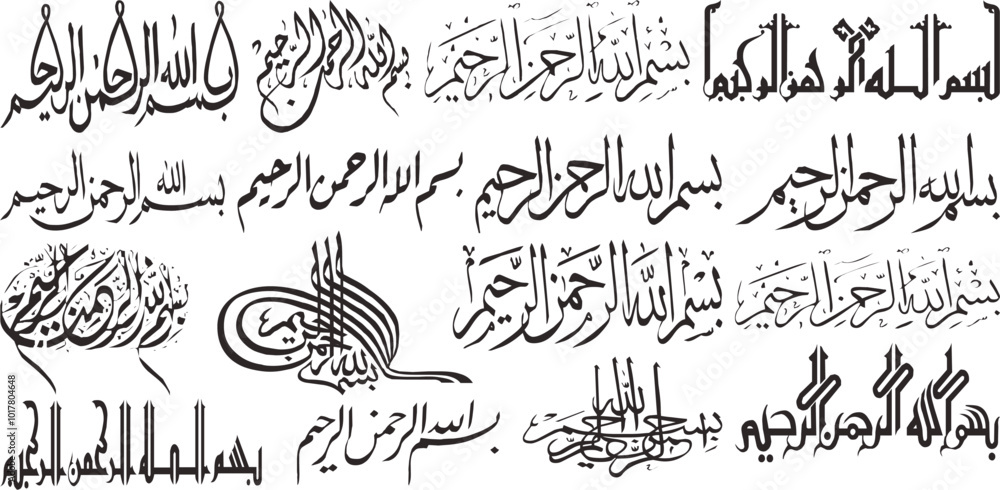 بسم الله الرحمن الرحيم
بِسْمِ اللَّهِ الرَّحْمَنِ الرَّحِيمِ
بسم الله الرحمن الرحيم
بسم الله الرحمن الرحيم
بسم الله الرحمن الرحيم
بسم الله الرحمن الرحيم
بسم الله الرحمن الرحيم
بسم الله الرحمن الرحيم
بِسْمِ اللَّهِ الرَّحْمَنِ الرَّحِيمِ
بِسْمِ اللَّهِ الرَّحْمَنِ الرَّحِيمِ
بسم الله الرحمن الرحيم
بسم الله الرحمن الرحيم
بسم الله الرحمن الرحيم
بسم الله الرحمن الرحيم
بسم الله الرحمن الرحيم
بسم الله الرحمن الرحيم
Adobe Stock | #1017804648